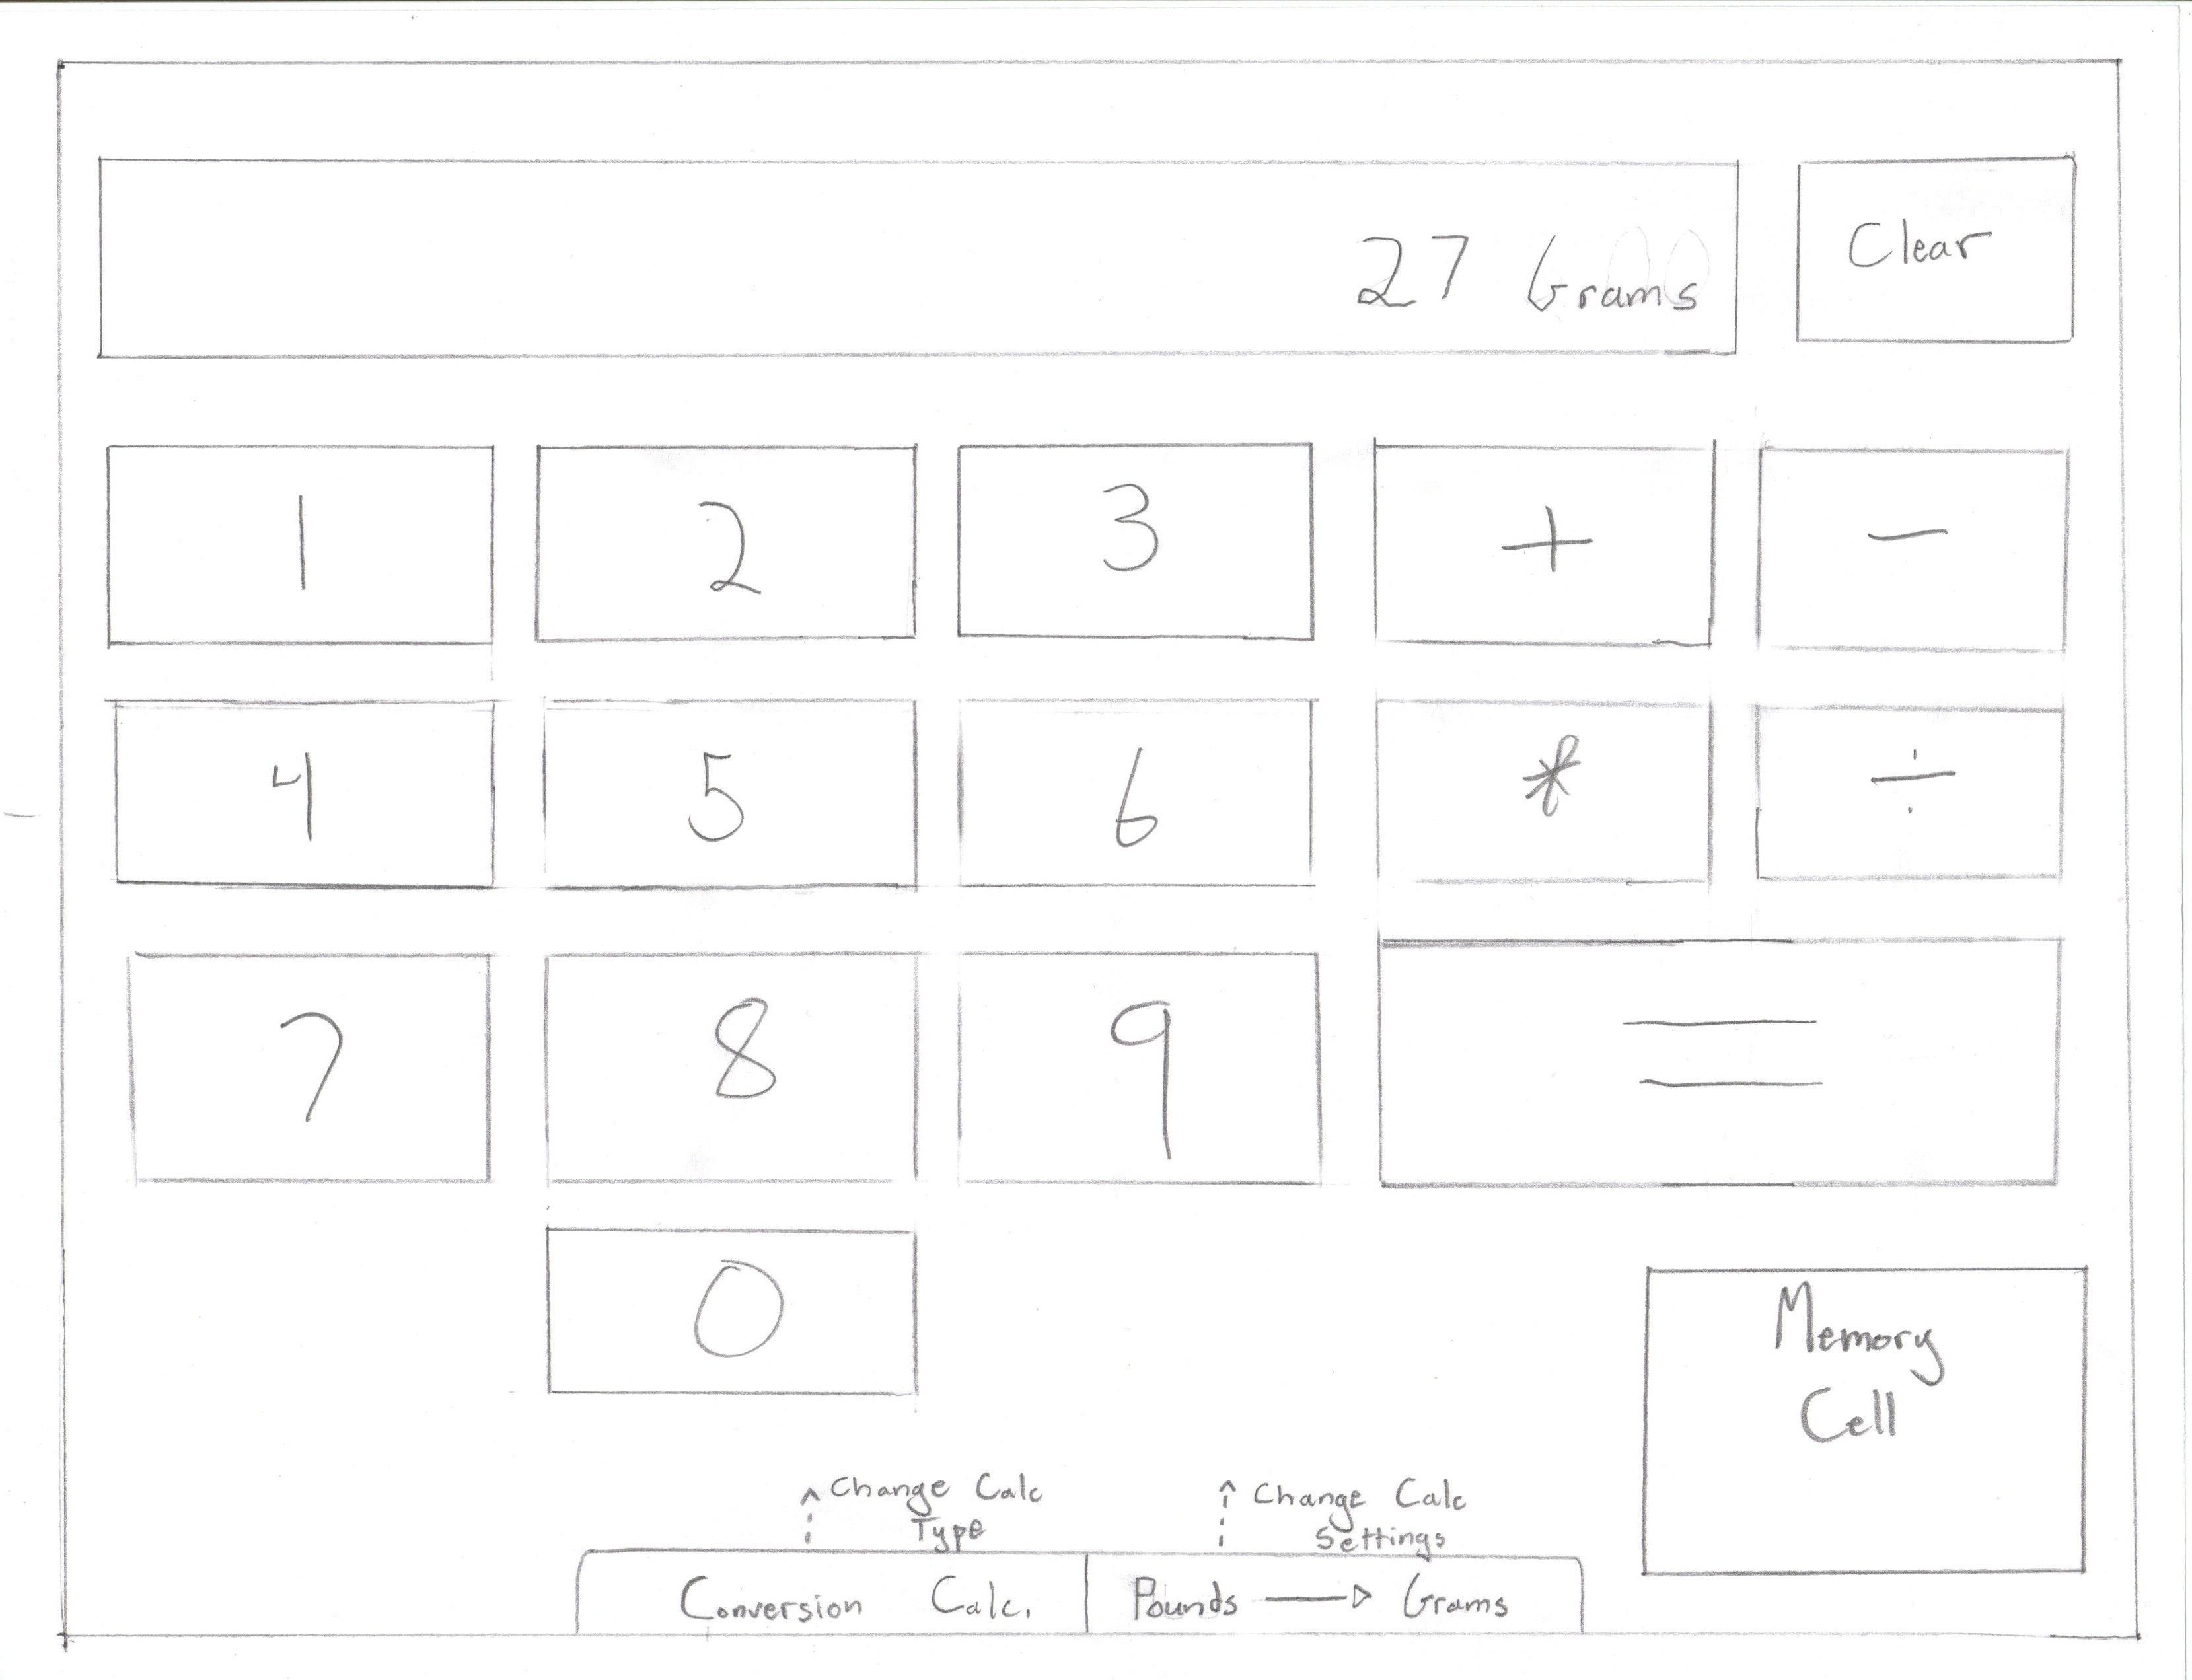 27 Grams
Clear
1 2 3 + −
4 5 6 * ÷
7 8 9 =
0
Memory
Cell
Change Calc
Type
Change Calc
Settings
Conversion Calc.
Pounds → Grams